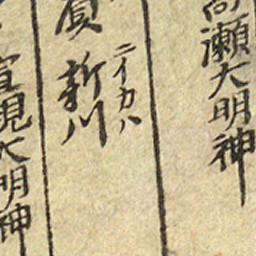 高瀬大明神
新川
ニイカハ
宣現大明神